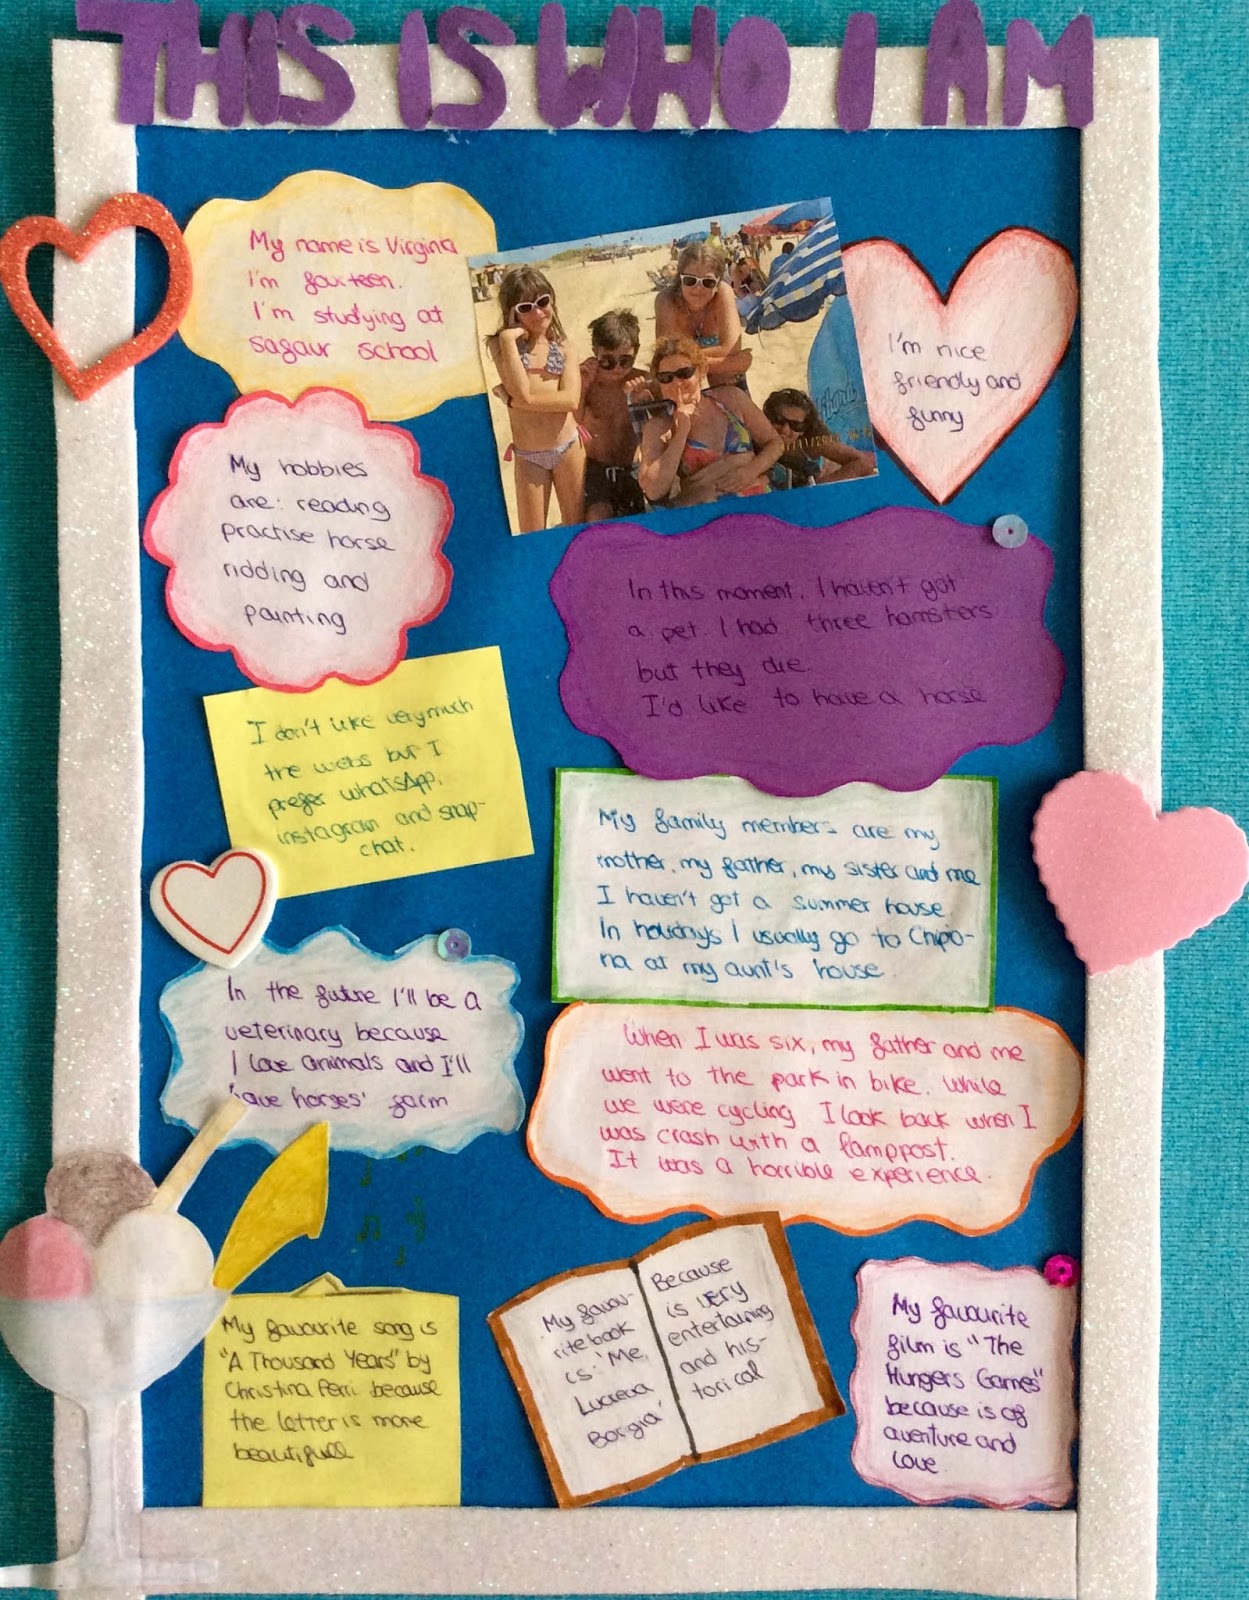 THIS IS WHO I AM
My name is Virginia
I'm fourteen.
I'm studying at
sagaur school
I'm nice
friendly and
funny
My hobbies
are: reading
practise horse
ridding and
painting
In this moment, I haven't got
a pet. I had three hamsters
but they die.
I'd like to have a horse
I don't like very much
the webs but I
prefer whatsApp,
instagram and snap-
chat.
My family members are my
mother, my father, my sister and me
I haven't got a summer house.
In holidays I usually go to Chipio-
na at my aunt's house.
In the future I'll be a
veterinary because
I love animals and I'll
have horses' farm
When I was six, my father and me
went to the park in bike. While
we were cycling I look back when I
was crash with a lamppost.
It was a horrible experience.
My favourite song is
"A Thousand Years" by
Christina Perri because
the letter is more
beautifull
My favou-
rite book
is: 'Me,
Lucrecia
Borgia'
Because
is very
entertaining
and his-
torical
My favourite
film is "The
Hungers Games"
because is of
aventure and
love.